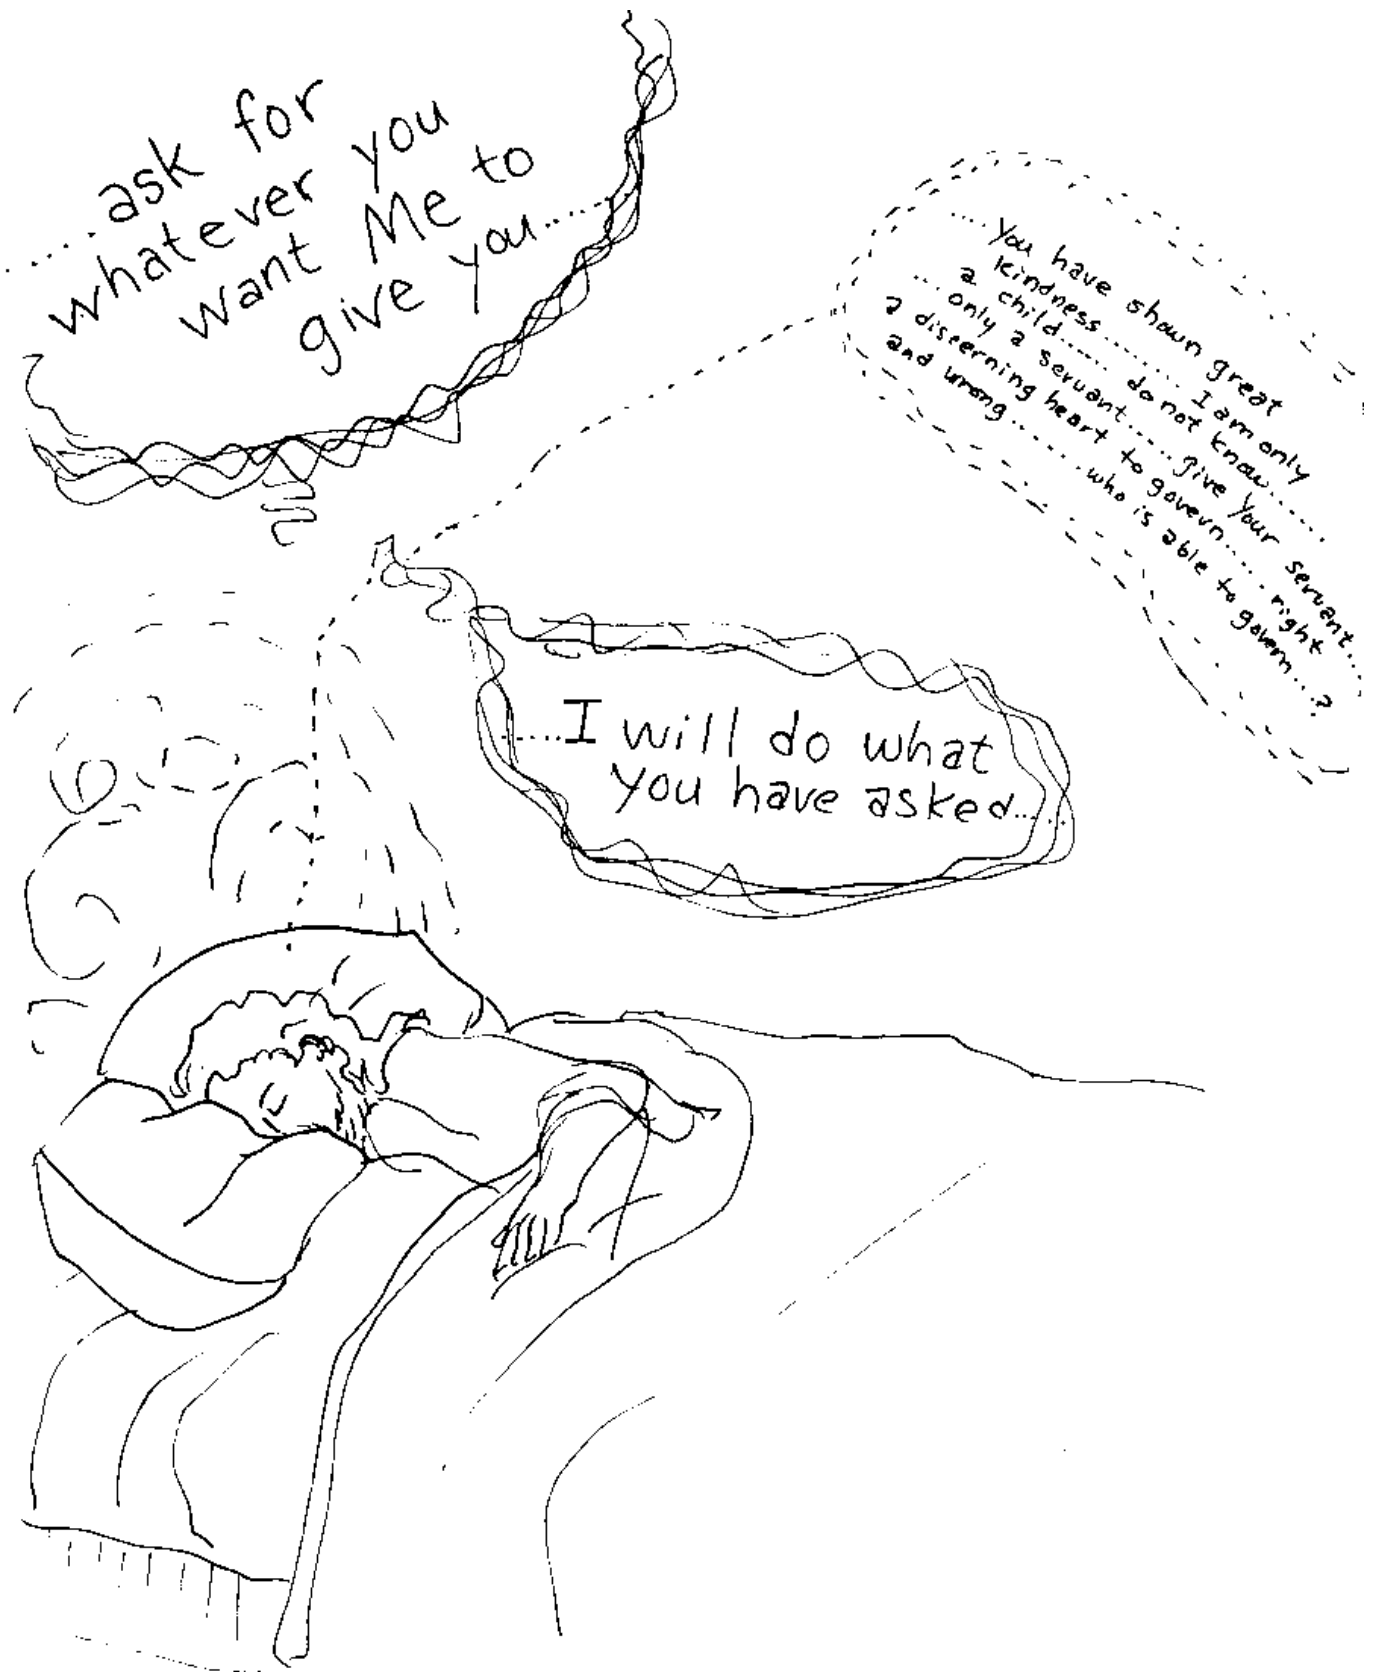 .....ask for
whatever you
want Me to
give you.......
.....You have shown great
kindness......... I am only
a child...... do not know......
... only a servant..... give Your servant...
a discerning heart to govern...... right
and wrong........ who is able to govern...?
.....I will do what
you have asked.....